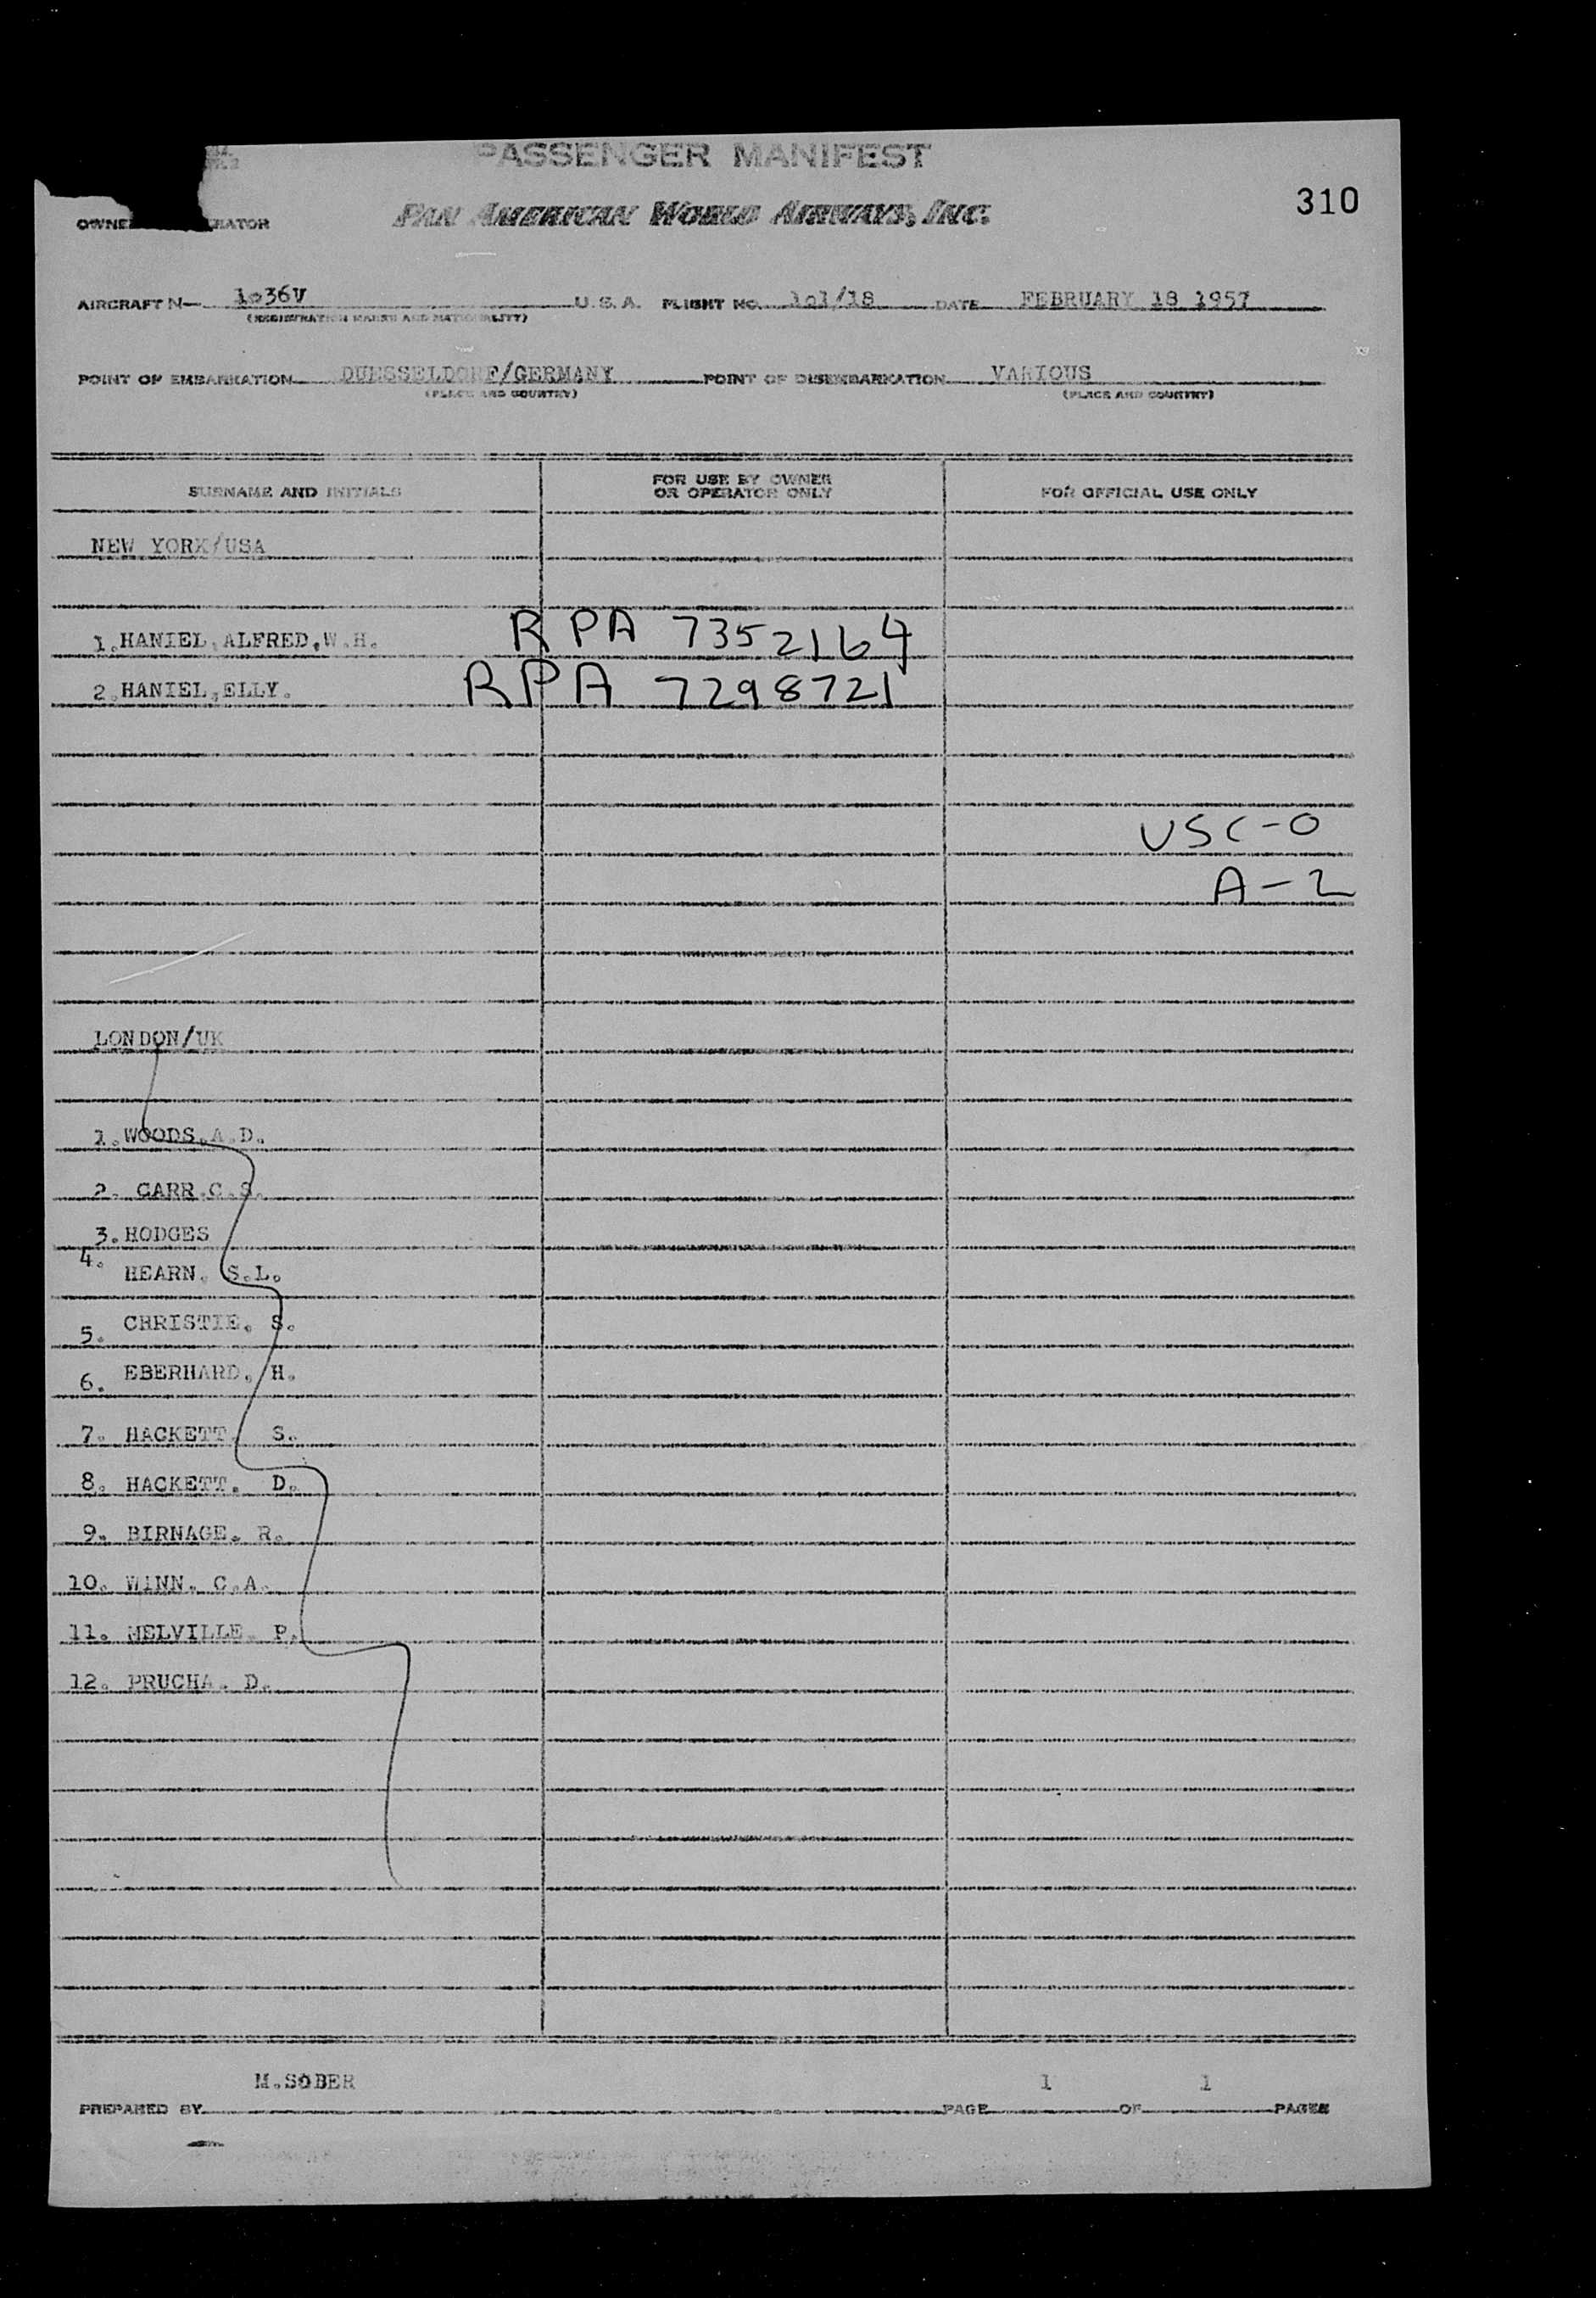 PASSENGER MANIFEST
310
PAN AMERICAN WORLD AIRWAYS, INC.
AIRCRAFT N— 1036V U.S.A. FLIGHT NO. 101/18 DATE FEBRUARY 18 1957
(REGISTRATION MARKS AND NATIONALITY)
POINT OF EMBARKATION DUESSELDORF/GERMANY POINT OF DISEMBARKATION VARIOUS
(PLACE AND COUNTRY) (PLACE AND COUNTRY)
SURNAME AND INITIALS FOR USE BY OWNER OR OPERATOR ONLY FOR OFFICIAL USE ONLY
NEW YORK/USA
1. HANIEL, ALFRED, W.H. RPA 7352164
2. HANIEL, ELLY. RPA 7298721
USC-0
A-2
LONDON/UK
1. WOODS, A.D.
2. CARR.C.S.
3. HODGES
4. HEARN. S.L.
5. CHRISTIE. S.
6. EBERHARD. H.
7. HACKETT. S.
8. HACKETT. D.
9. BIRNAGE. R.
10. WINN. C.A.
11. MELVILLE. P.
12. PRUCHA. D.
M.SOBER 1 1
PREPARED BY PAGE OF PAGES